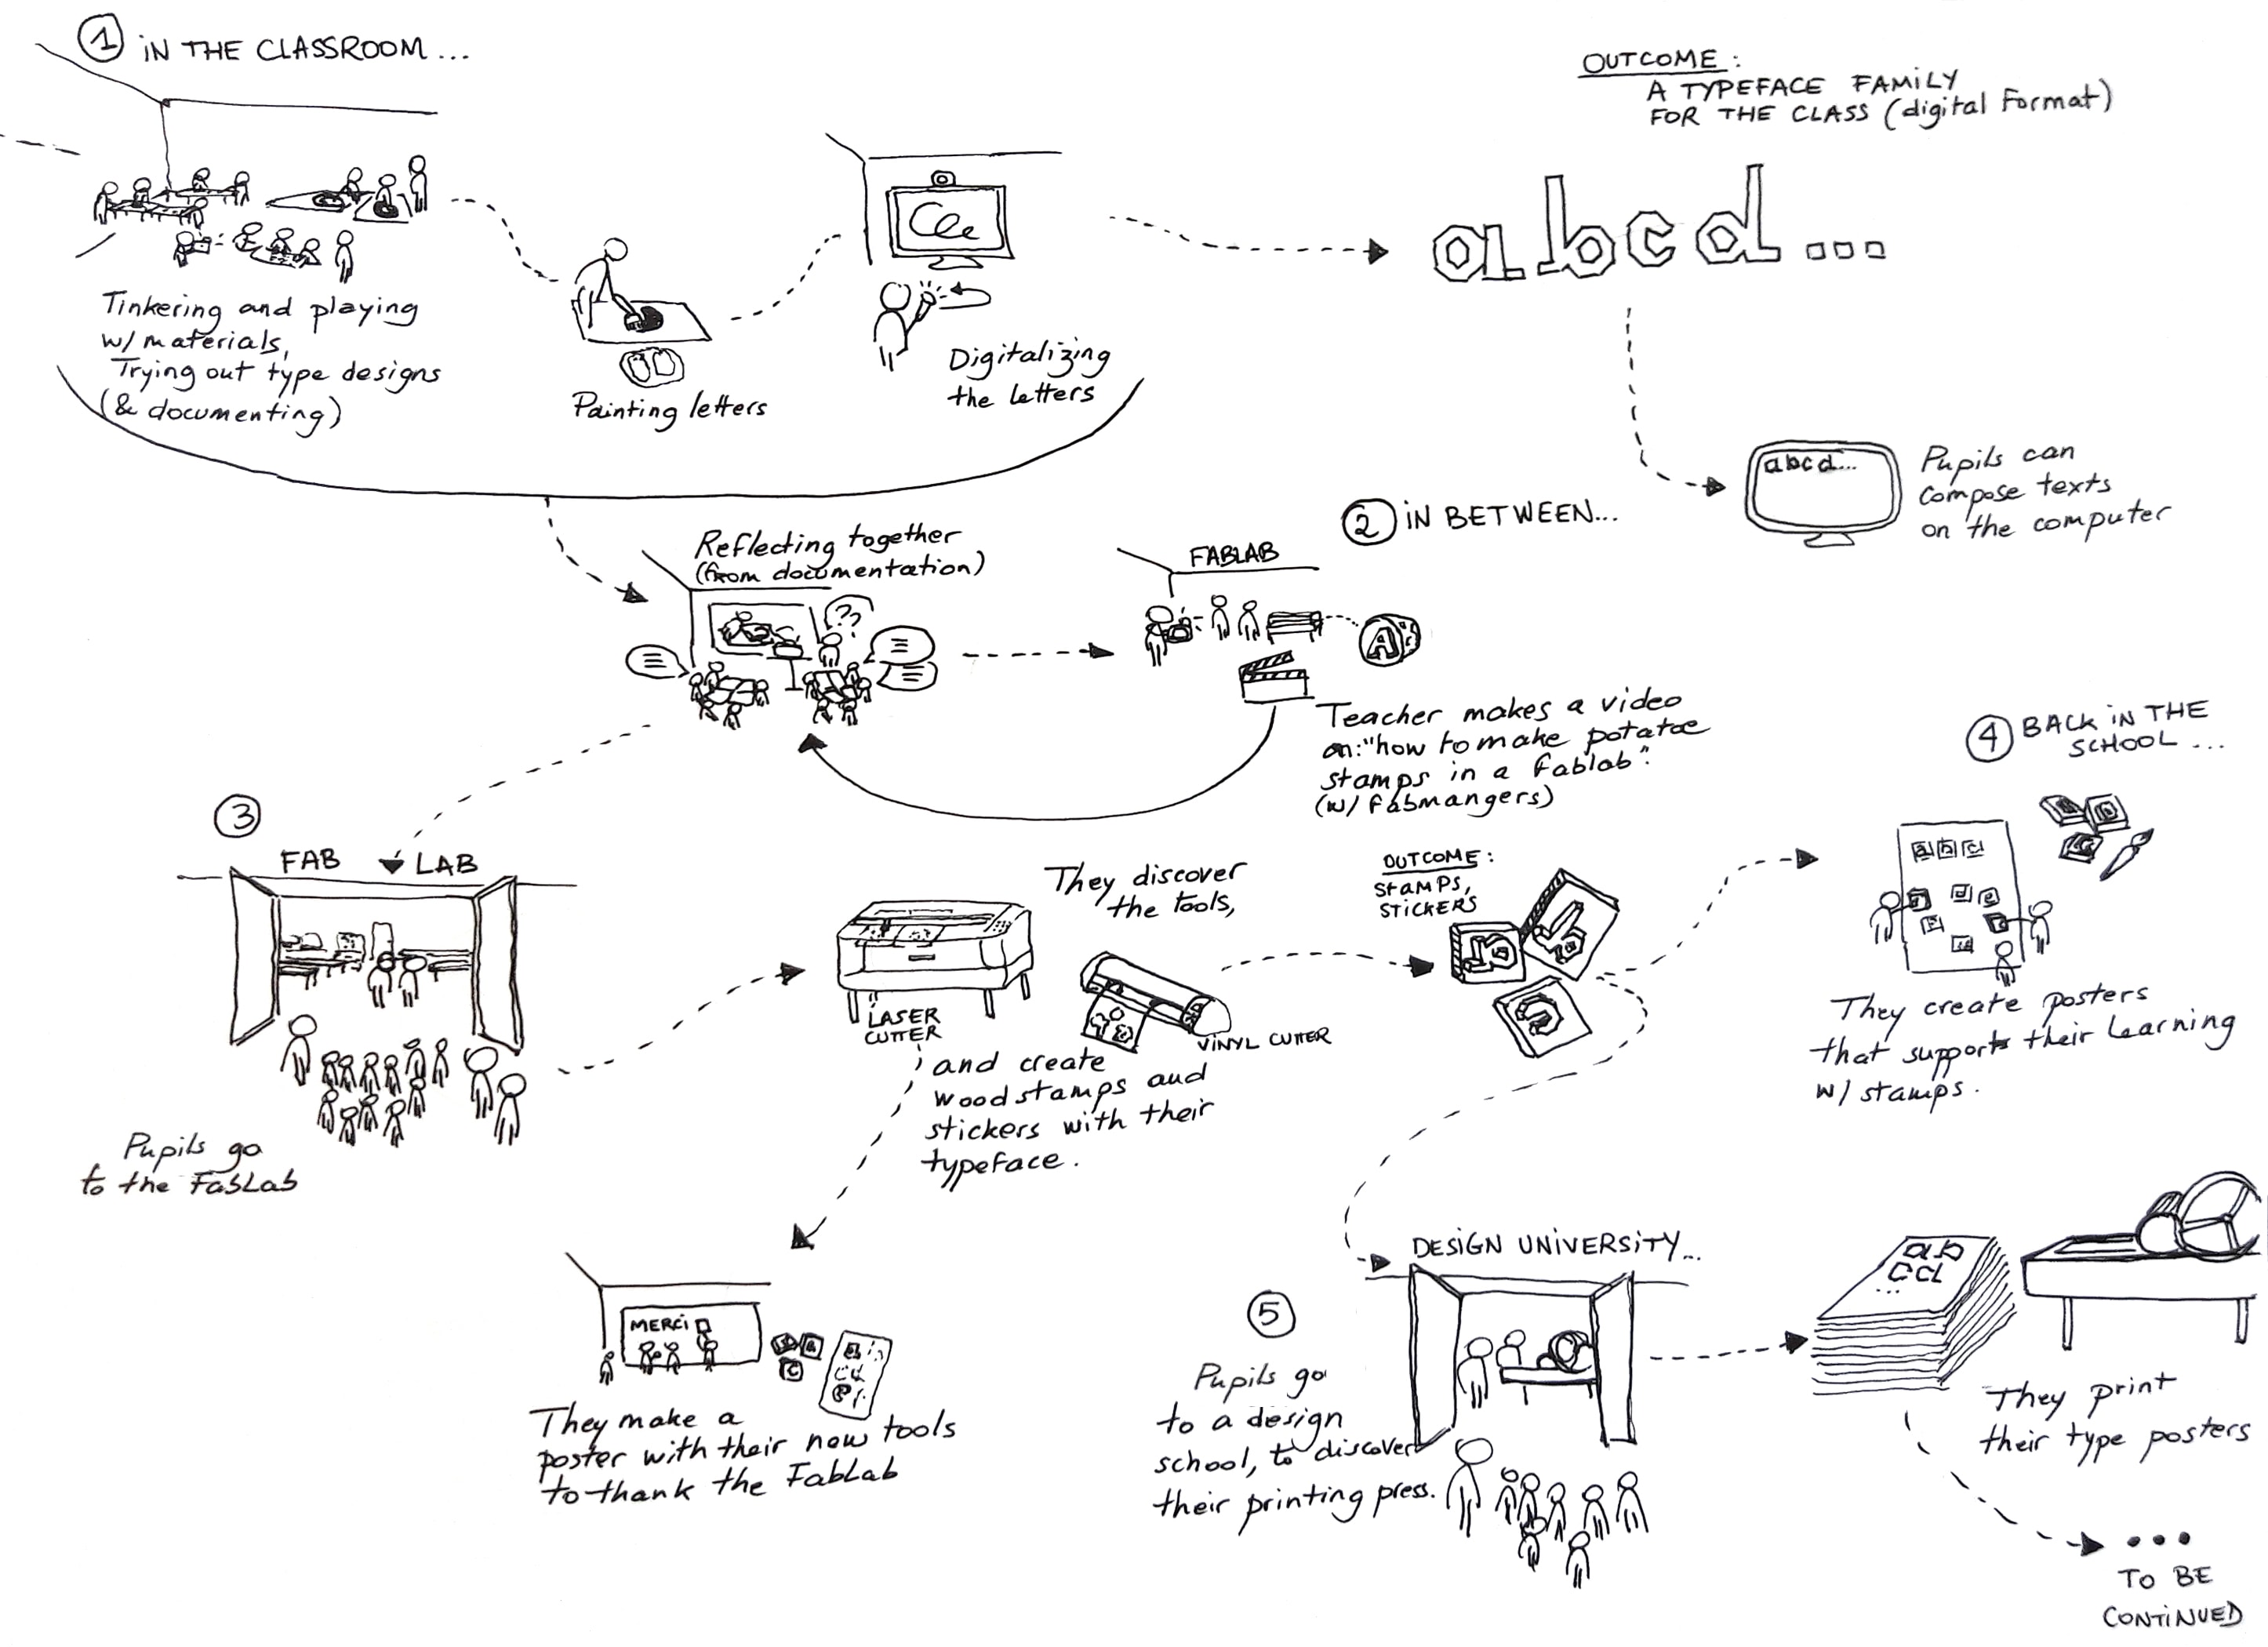 1 iN THE CLASSROOM...
Tinkering and playing
w/ materials,
Trying out type designs
(& documenting)
Painting letters
Digitalizing
the letters
OUTCOME:
A TYPEFACE FAMILY
FOR THE CLASS (digital Format)
abcd...
abcd...
Pupils can
compose texts
on the computer
Reflecting together
(from documentation)
??
2 iN BETWEEN...
FABLAB
A
Teacher makes a video
on: "how to make potatoe
stamps in a fablab".
(w/ fabmangers)
3
FAB LAB
Pupils go
to the FabLab
They discover
the tools,
LASER
CUTTER
ViNYL CUTTER
and create
wood stamps and
stickers with their
typeface.
OUTCOME:
STAMPS,
STICKERS
4 BACK iN THE
SCHOOL...
They create posters
that supports their learning
w/ stamps.
MERCi
They make a
poster with their new tools
to thank the FabLab
5
DESIGN UNIVERSiTY...
Pupils go
to a design
school, to discover
their printing press.
ab
They print
their type posters
...
TO BE
CONTiNUED